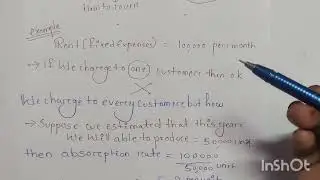 How to return
Example
Rent (fixed expenses) = 100000 per month
→ If We charge to any customer then ok
We charge to every customer but how
→ Suppose we estimated that this years
We will able to produce = 50000 unit
then absorption rate = 100000
50,000 units
InShOt